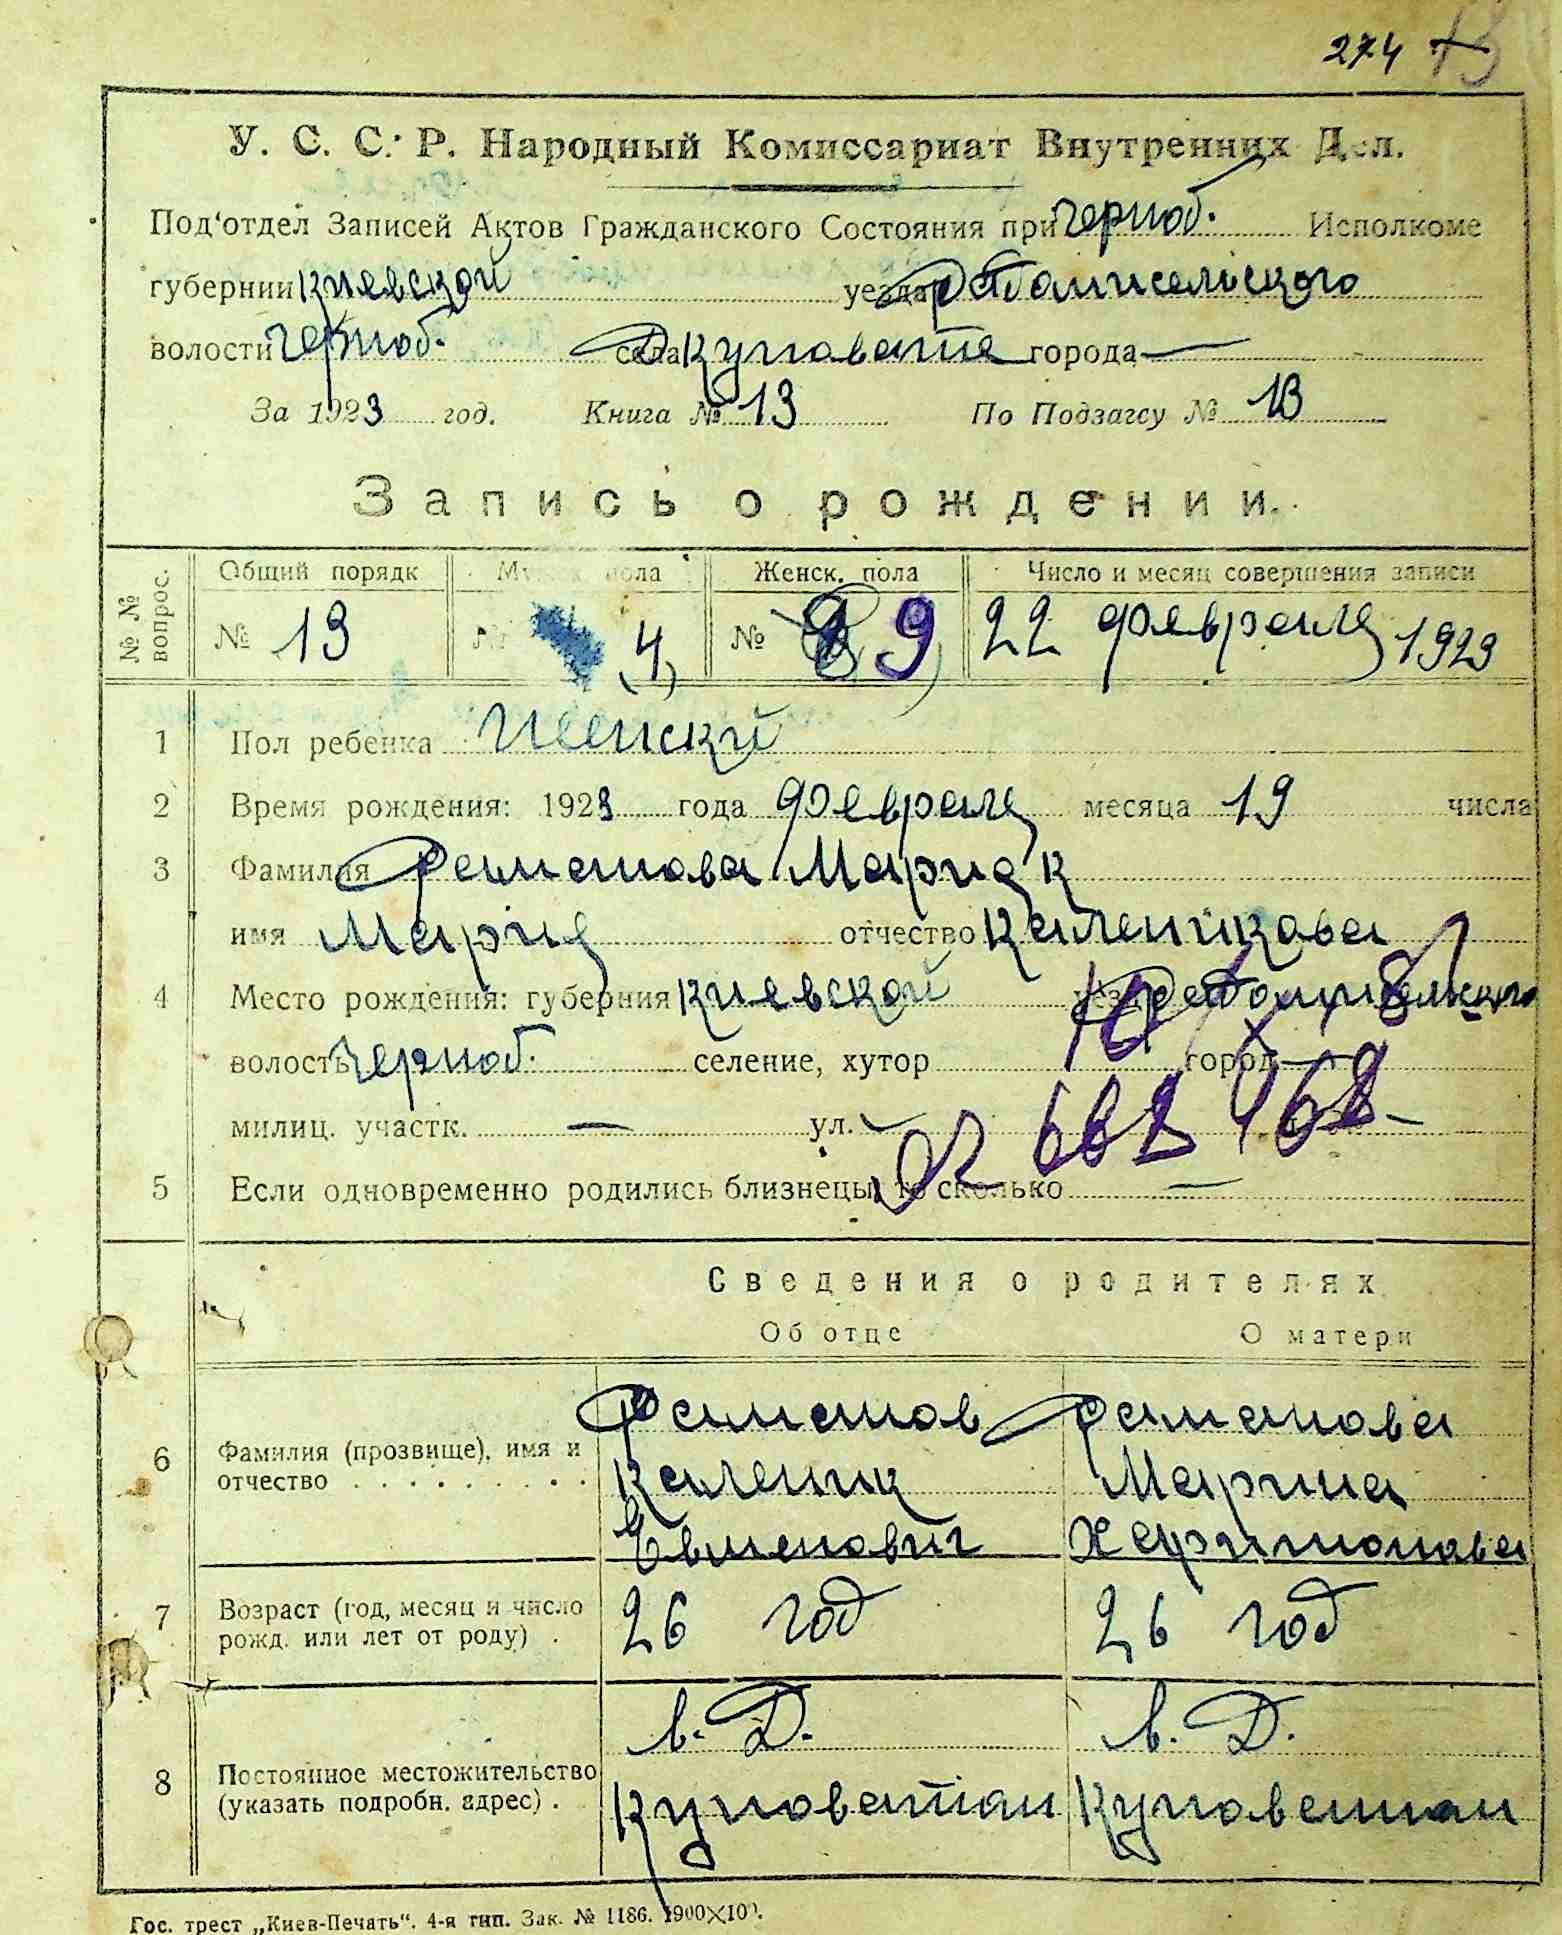 274
У. С. С. Р. Народный Комиссариат Внутренних Дел.
Под'отдел Записей Актов Гражданского Состояния при Черноб. Исполкоме
губернии Киевской уезда
волости Черноб. села города —
За 1923 год. Книга № 13 По Подзагсу № 13
Запись о рождении.
№№ вопрос. Общий порядк Мужск. пола Женск. пола Число и месяц совершения записи
№ 13 № 4 № 9 22 февраля 1923
1 Пол ребенка Женский
2 Время рождения: 1923 года февраля месяца 19 числа
3 Фамилия Романова Мария К
имя Мария отчество Каленикова
4 Место рождения: губерния Киевской уезд
волость Черноб. селение, хутор город —
милиц. участк. — ул. —
5 Если одновременно родились близнецы, то сколько —
Сведения о родителях
Об отце О матери
6 Фамилия (прозвище), имя и отчество
Романов Романова
Каленик Марина
Евменович Харитонова
7 Возраст (год, месяц и число рожд. или лет от роду) .
26 год 26 год
8 Постоянное местожительство (указать подробн. адрес) .
в. Д. в. Д.
Гос. трест „Киев-Печать“. 4-я тип. Зак. № 1186. 1900×100.